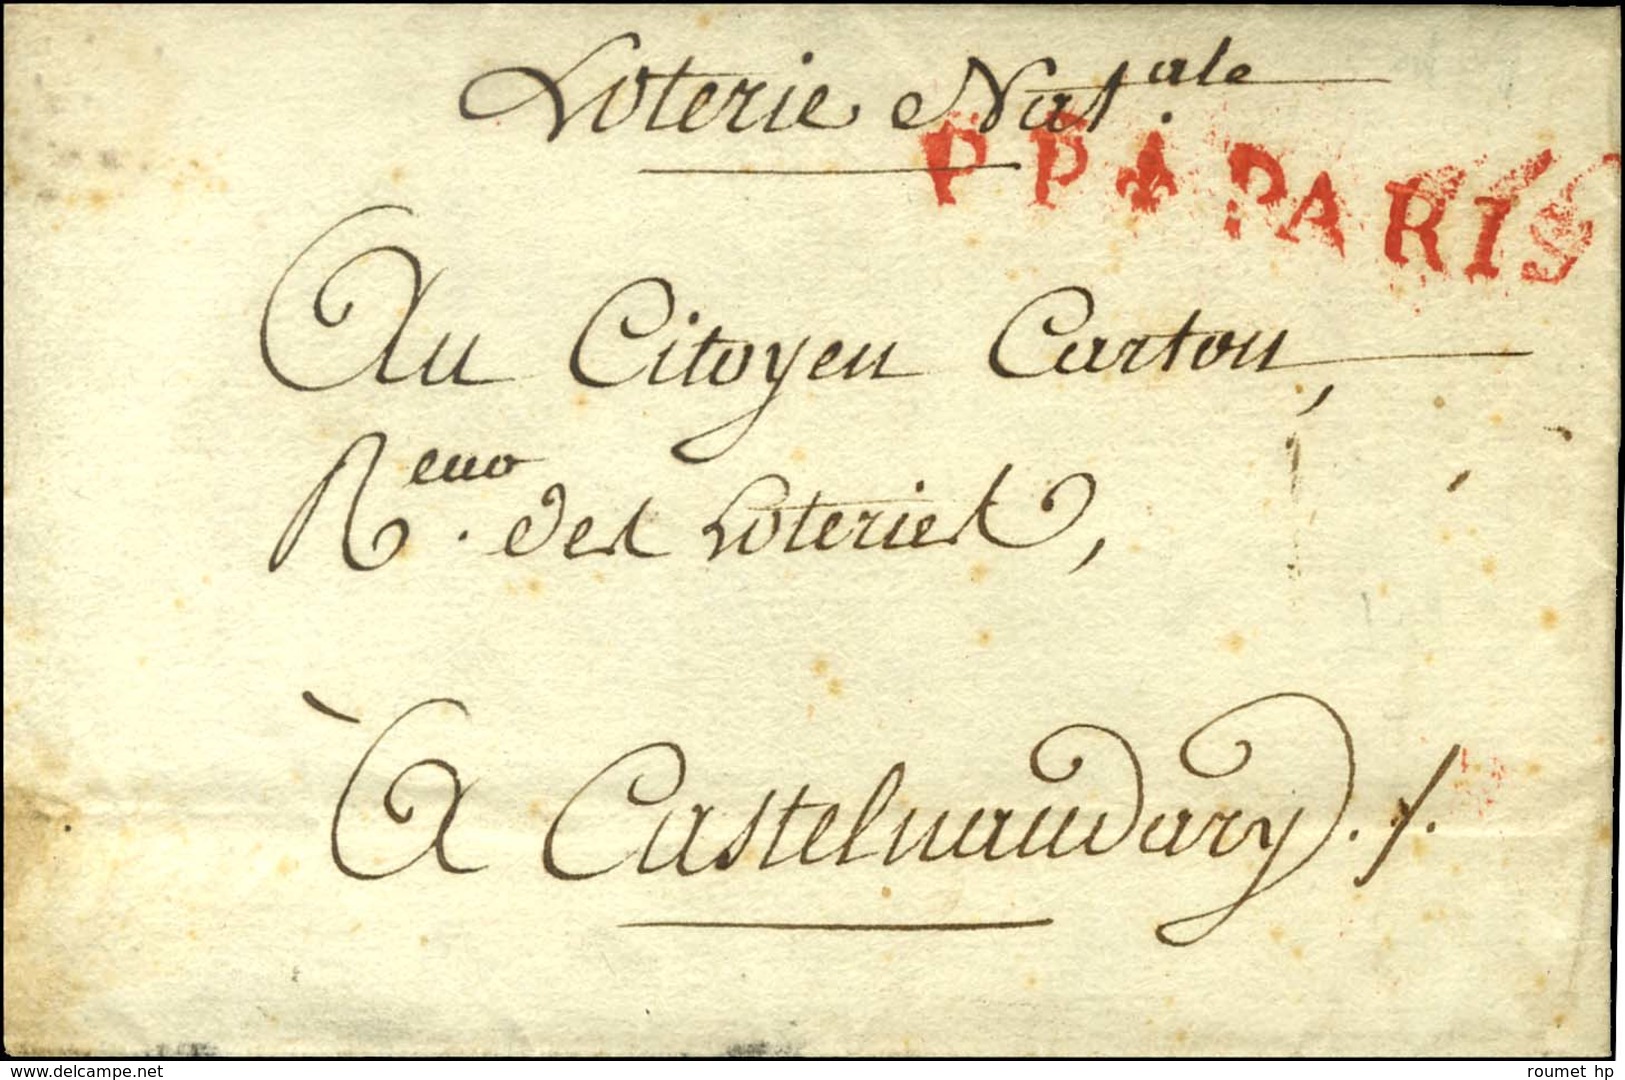 Loterie Nat.ale
P P PARIS
Au Citoyen Carton,
R.euo des Loteries,
à Castelnaudary ./.
delcampe.net
roumet hp